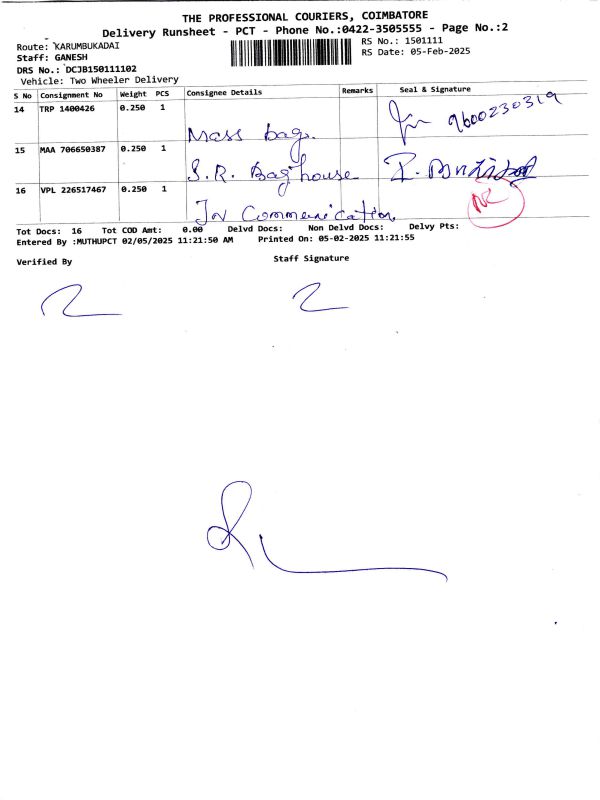 THE PROFESSIONAL COURIERS, COIMBATORE
Delivery Runsheet - PCT - Phone No.:0422-3505555 - Page No.:2
Route: KARUMBUKADAI
RS No.: 1501111
Staff: GANESH
RS Date: 05-Feb-2025
DRS No.: DCJB150111102
Vehicle: Two Wheeler Delivery
S No Consignment No Weight PCS Consignee Details Remarks Seal & Signature
14 TRP 1400426 0.250 1 Mass bags. 9600230319
15 MAA 706650387 0.250 1 S.R. Bag house
16 VPL 226517467 0.250 1 Jn Communication NR
Tot Docs: 16 Tot COD Amt: 0.00 Delvd Docs: Non Delvd Docs: Delvy Pts:
Entered By :MUTHUPCT 02/05/2025 11:21:50 AM Printed On: 05-02-2025 11:21:55
Verified By Staff Signature